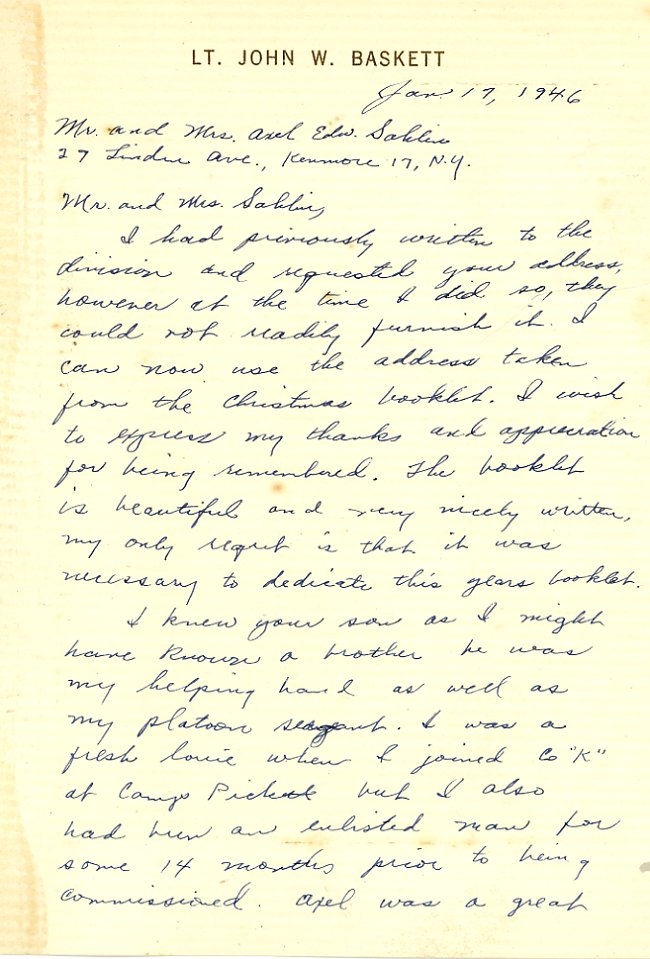 LT. JOHN W. BASKETT
Jan. 17, 1946
Mr. and Mrs. Axel Edw. Sahlin
27 Linden Ave., Kenmore 17, N.Y.
Mr. and Mrs. Sahlin,
I had previously written to the
division and requested your address,
however at the time I did so, they
could not readily furnish it. I
can now use the address taken
from the Christmas booklet. I wish
to express my thanks and appreciation
for being remembered. The booklet
is beautiful and very nicely written,
my only regret is that it was
necessary to dedicate this years booklet.
I knew your son as I might
have known a brother he was
my helping hand as well as
my platoon seargeant. I was a
fresh louie when I joined Co "K"
at Camp Pickett but I also
had been an enlisted man for
some 14 months prior to being
commissioned. Axel was a great